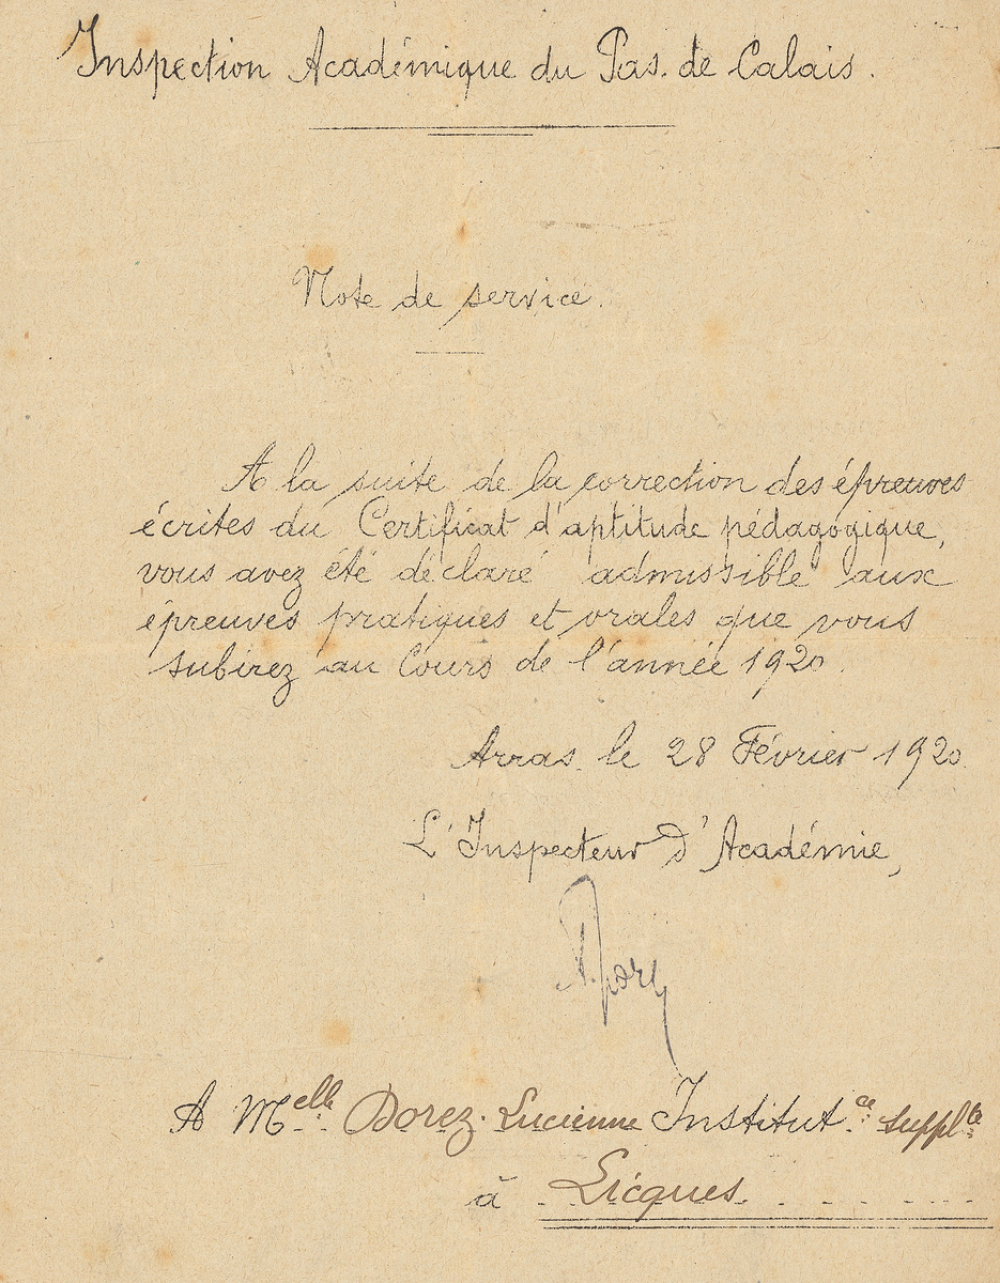 Inspection Académique du Pas. de Calais.
Note de service.
A la suite de la correction des épreuves
écrites du Certificat d'aptitude pédagogique,
vous avez été déclaré admissible aux
épreuves pratiques et orales que vous
subirez au Cours de l'année 1920.
Arras. le 28 Février 1920
L'Inspecteur d'Académie,
A Melle Dorez. Lucienne Institut.ce supplte
à Licques.